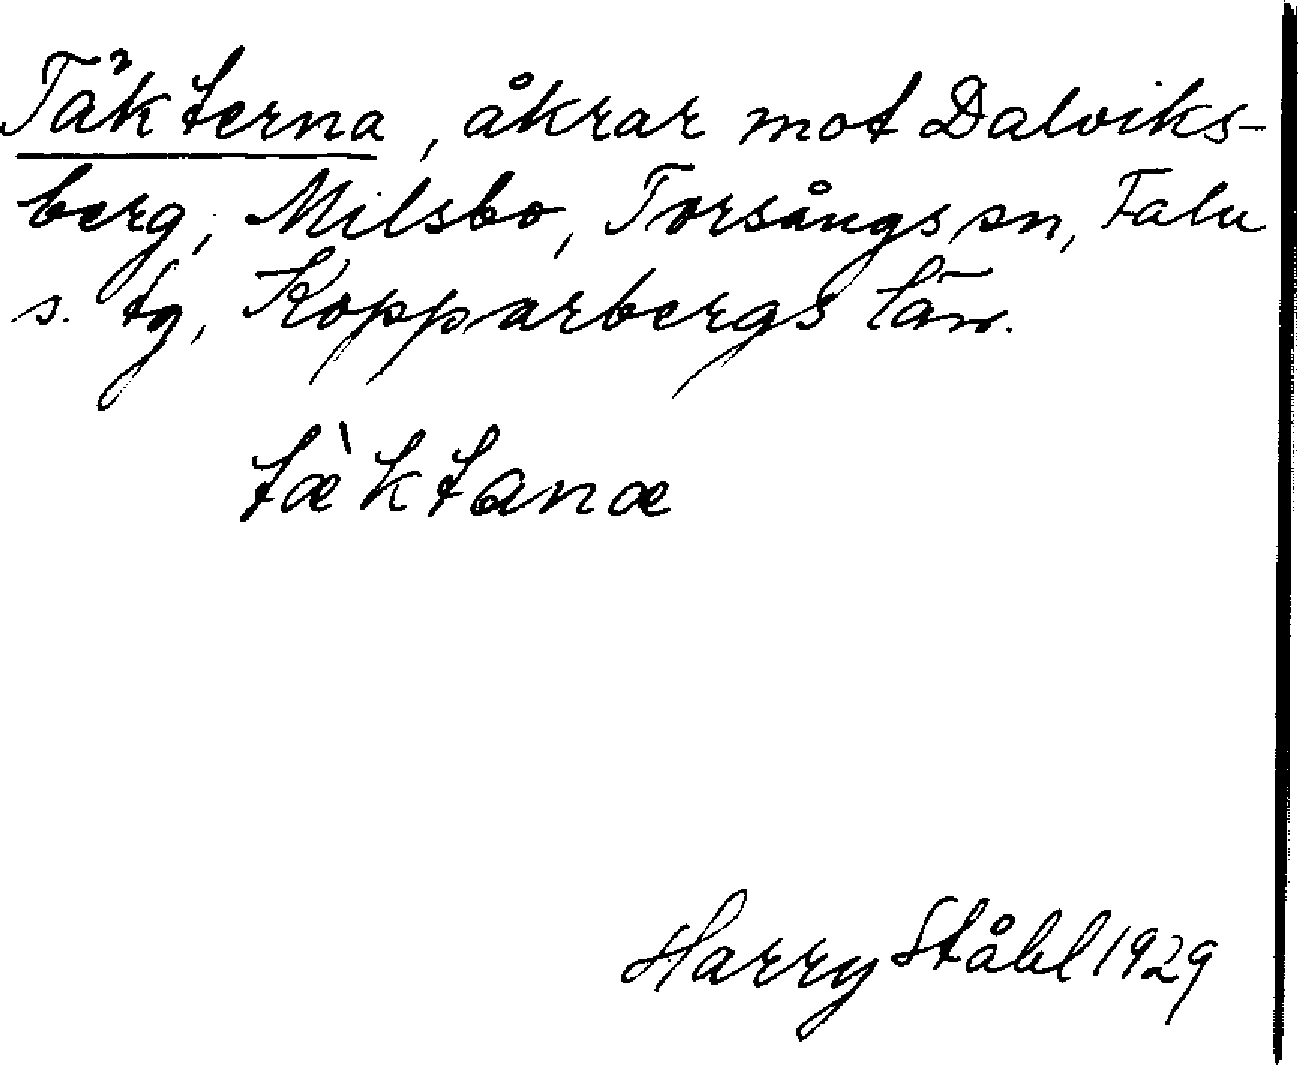 Täkterna, åkrar mot Dalviks-
berg, Milsbo, Torsångs sn, Falu
s. tg, Kopparbergs län.
tæ̀ktanæ
Harry Ståhl 1929